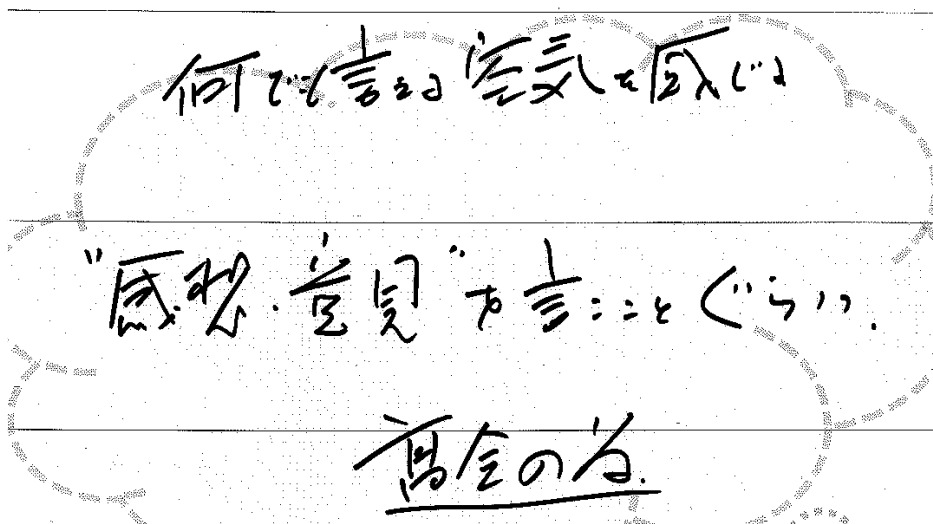 何でも言える空気を感じる
"感想・意見"を言うことぐらい.